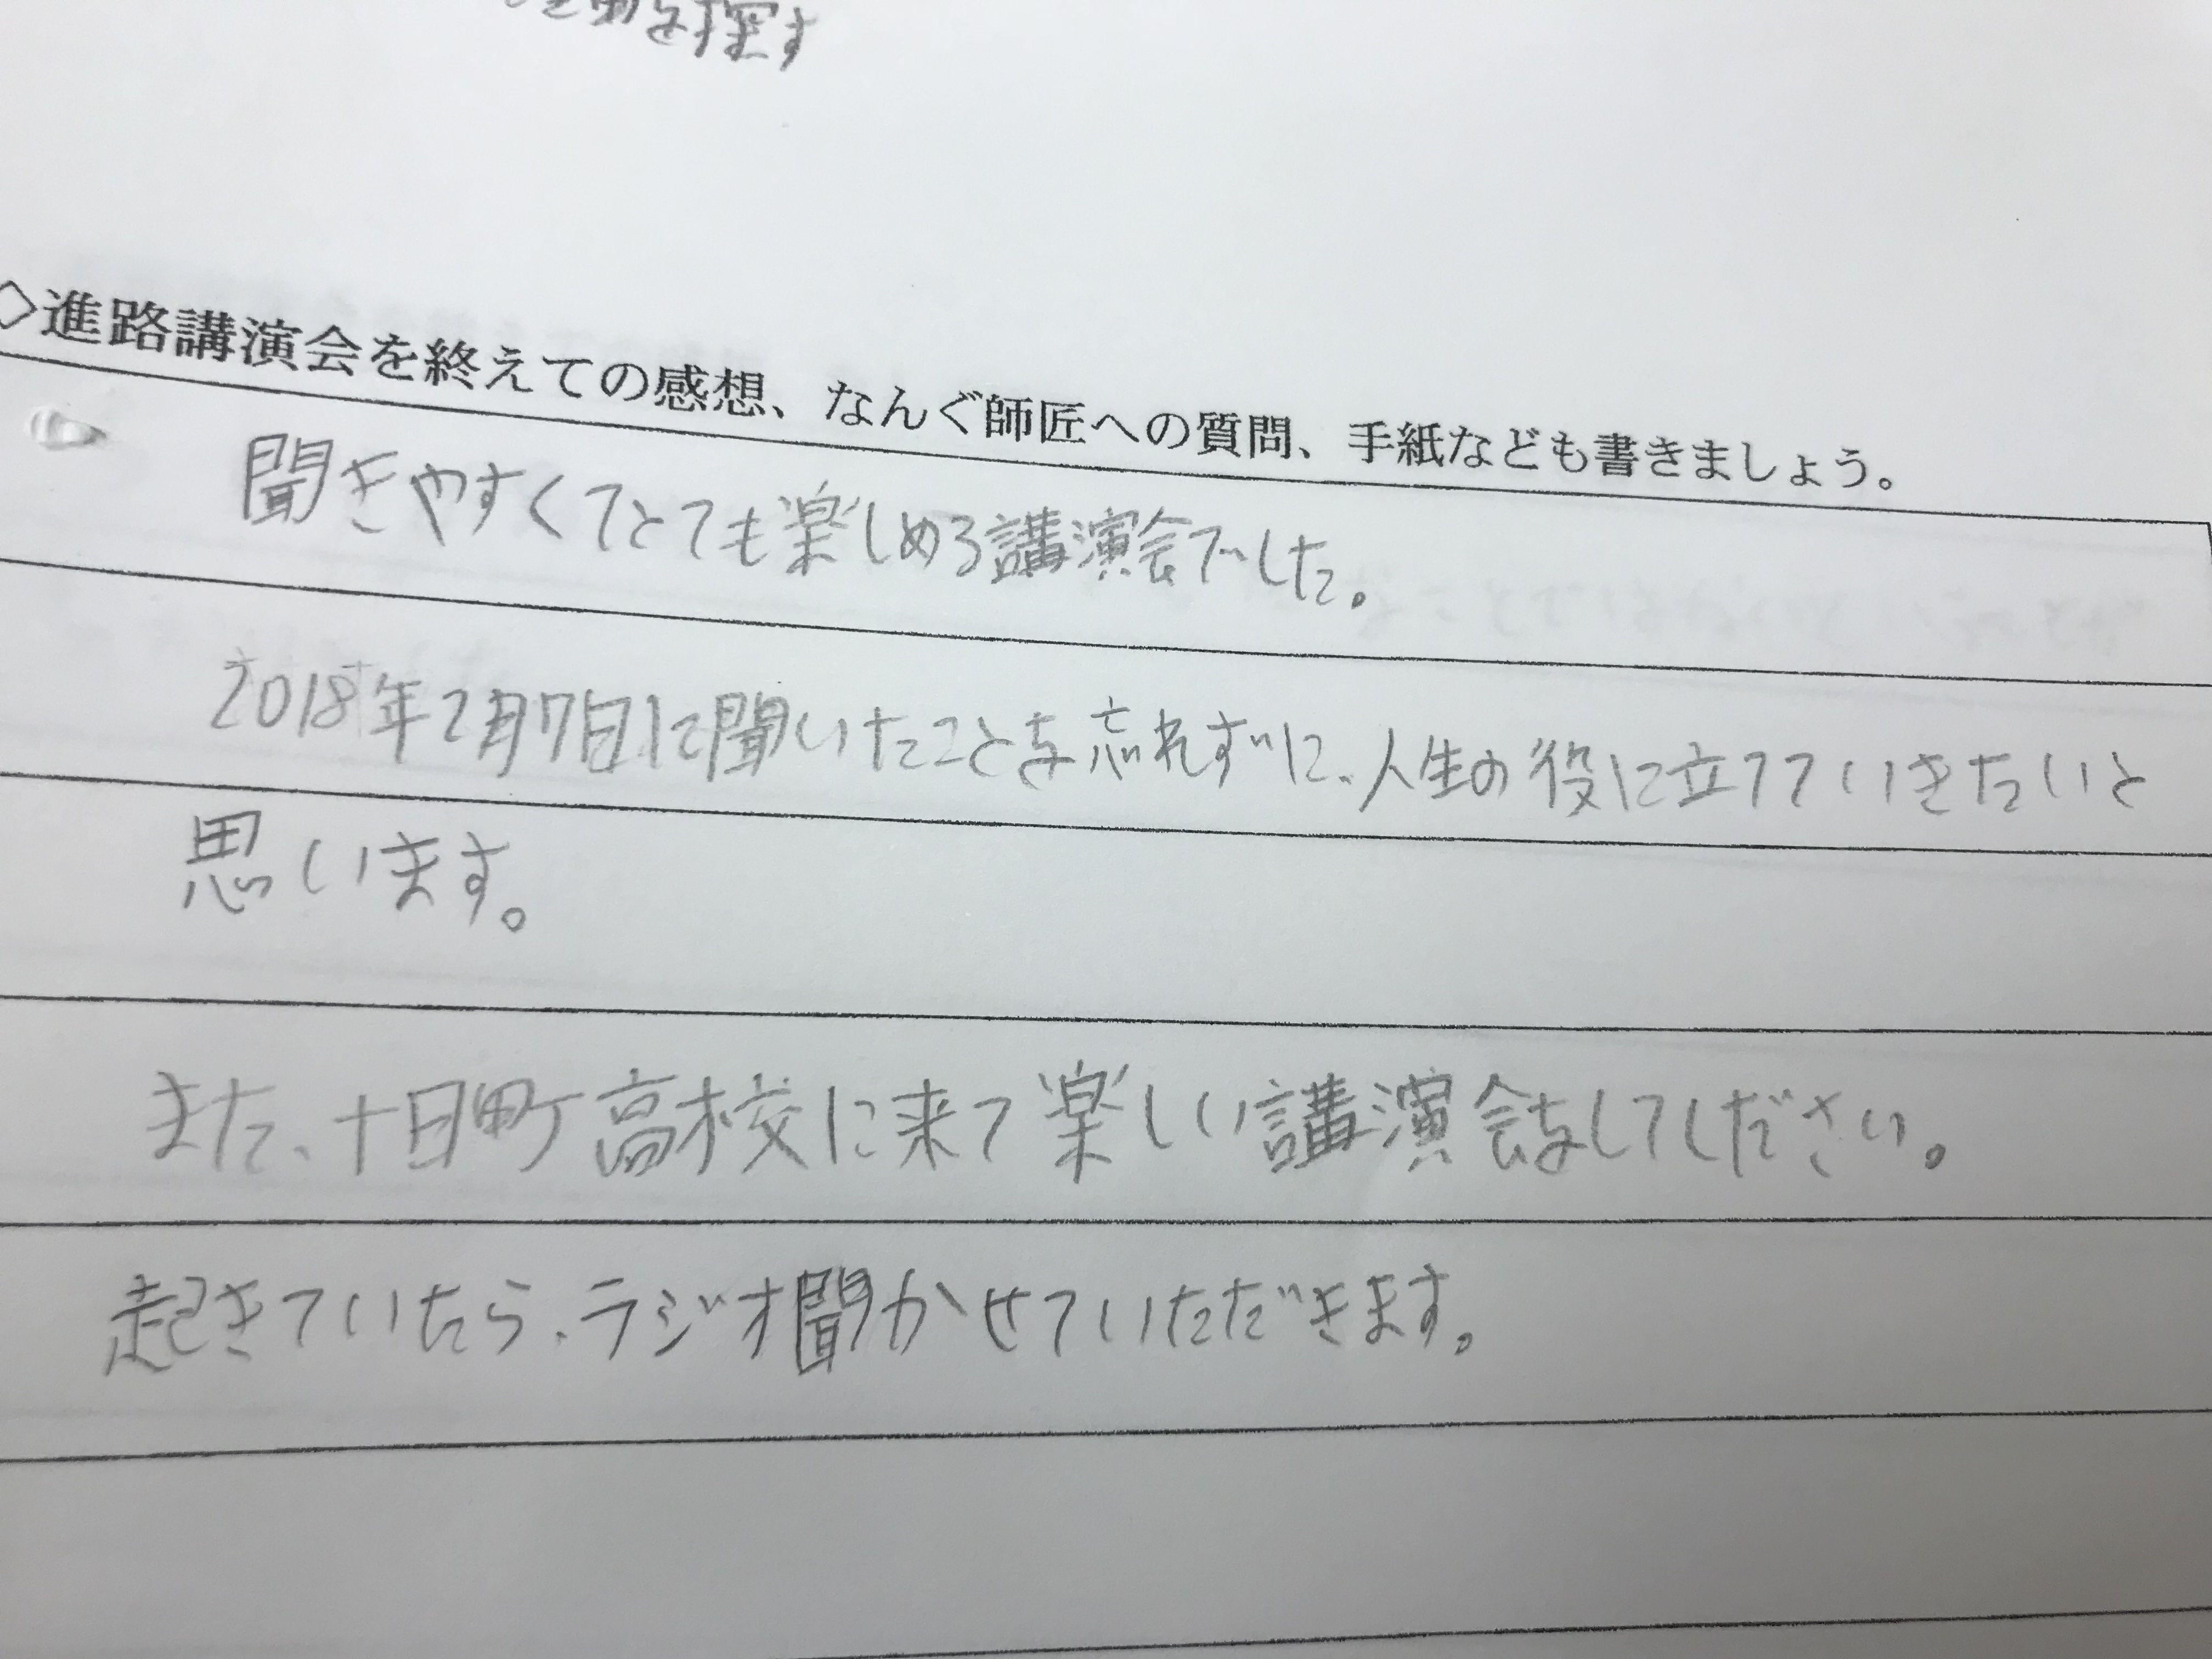 を探す
◇進路講演会を終えての感想、なんぐ師匠への質問、手紙なども書きましょう。
聞きやすくてとても楽しめる講演会でした。
2018年2月7日に聞いたことを忘れずに、人生の役に立てていきたいと
思います。
また、十日町高校に来て楽しい講演会をしてください。
起きていたら、ラジオ聞かせていただきます。